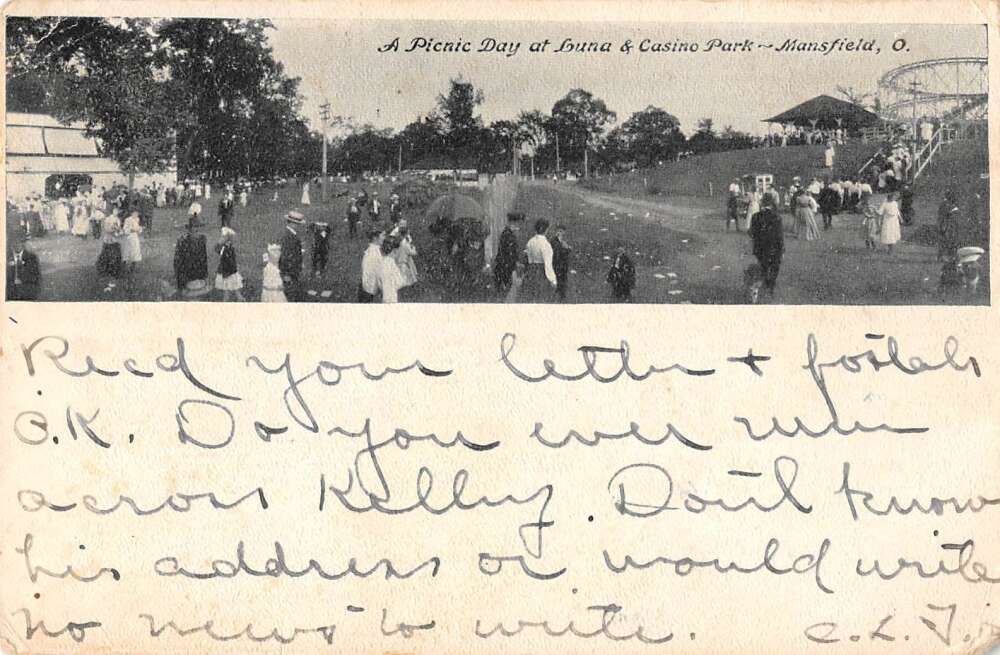 A Picnic Day at Luna & Casino Park ~ Mansfield, O.
Recd your letter + postals
O.K. Do you ever run
across Kelley. Don't know
his address or would write
no news to write. C.L.T.